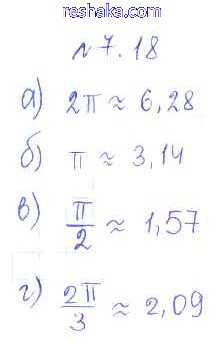 reshaka.com
№7.18
а) 2π ≈ 6,28
б) π ≈ 3,14
в) π/2 ≈ 1,57
г) 2π/3 ≈ 2,09